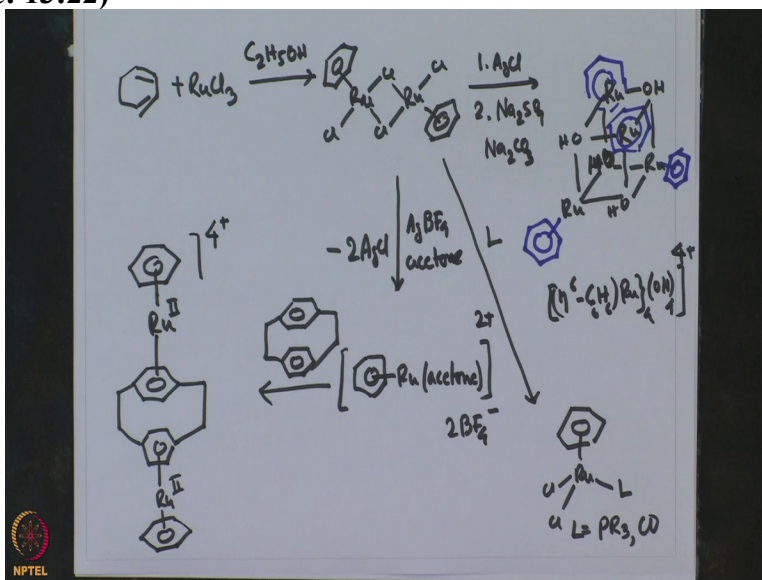 + RuCl3
C2H5OH
Cl
Cl
Ru
Ru
Cl
Cl
1. AgCl
2. Na2SO4
Na2CO3
Ru
OH
HO
Ru
HO
Ru
Ru
HO
[{(η6-C6H6)Ru}4(OH)4]4+
- 2AgCl
AgBF4
acetone
L
4+
Ru
II
[
Ru(acetone)]2+
2BF4-
Ru
II
Ru
Cl
L
Cl
L = PR3, CO
NPTEL